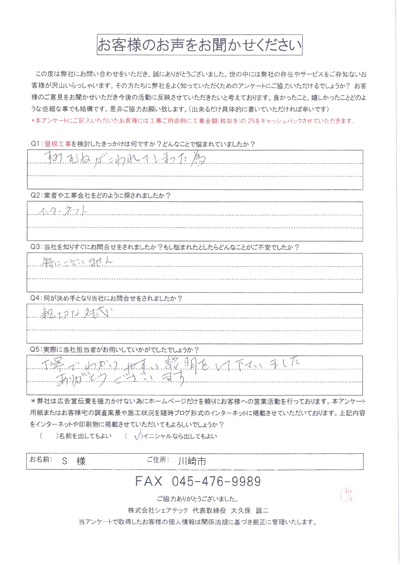 お客様のお声をお聞かせください
この度は弊社にお問い合わせをいただき、誠にありがとうございました。世の中には弊社の存在やサービスをご存知ないお
客様が沢山いらっしゃいます。その方たちに弊社をよく知っていただくためのアンケートにご協力いただけるでしょうか？ お客
様のご意見をお聞かせいただき今後の活動に反映させていただきたいと考えております。良かったこと、嬉しかったことどのよ
うな些細な事でも結構です。是非ご協力お願い致します。（出来るだけ具体的に書いていただければ幸いです）
*本アンケートにご記入いただいたお客様には工事ご用命時に工事金額(税抜き)の 2%をキャッシュバックさせていただきます。
Q1:屋根工事を検討したきっかけは何ですか？どんなことで悩まれていましたか？
こわれてしまった為
Q2:業者や工事会社をどのように探されましたか？
インターネット
Q3:当社を知りすぐにお問合せをされましたか？もし悩まれたとしたらどんなことがご不安でしたか？
特にございません
Q4:何が決め手となり当社にお問合せをされましたか？
親切な対応
Q5:実際に当社担当者がお伺いしていかがでしたでしょうか？
丁寧でわかりやすい説明をして下さいました
ありがとうございます
*弊社は広告宣伝費を極力かけない為にホームページだけを頼りにお客様への営業活動を行っております。本アンケート
用紙またはお客様宅の調査風景や施工状況を随時ブログ形式のインターネットに掲載させていただいております。上記内容
をインターネットや印刷物に掲載させていただいてもよろしいでしょうか？
( )名前を出してもよい (✓)イニシャルなら出してもよい
お名前: S 様 ご住所: 川崎市
FAX 045-476-9989
ご協力ありがとうございました。
株式会社シェアテック 代表取締役 大久保 誠二
当アンケートで取得したお客様の個人情報は関係法規に基づき厳正に管理いたします。